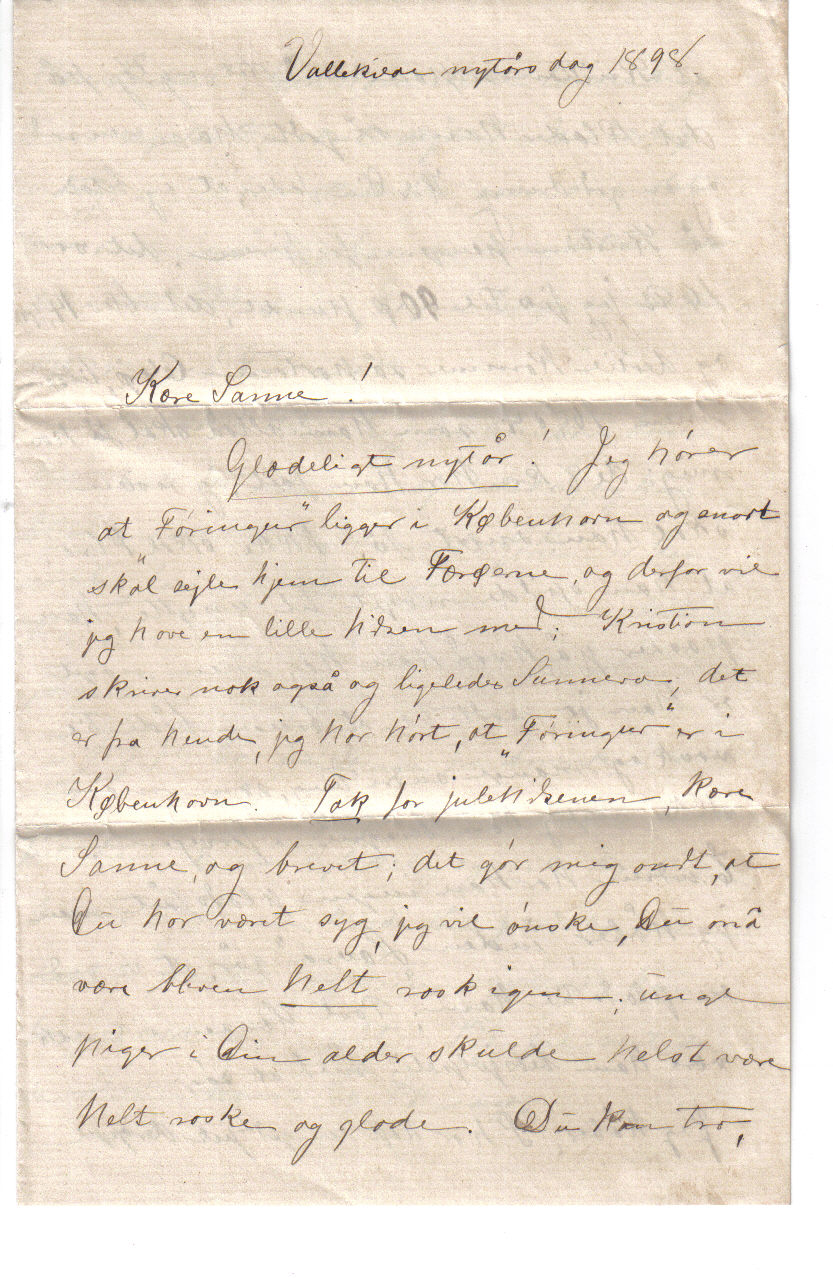 Vallekilde nytårsdag 1898.
Kære Sanne!
Glædeligt nytår! Jeg hører
at „Føringur" ligger i København og snart
skal sejle hjem til Færøerne, og derfor vil
jeg have en lille hilsen med; Kristian
skriver nok også og ligeledes Sunneva, det
er fra hende, jeg har hørt, at „Føringur" er i
København. Tak for julehilsenen, kære
Sanne, og brevet; det gør mig ondt, at
Du har været syg, jeg vil ønske, Du må
være bleven helt rask igen; unge
piger i Din alder skulde helst være
helt raske og glade. Du kan tro,